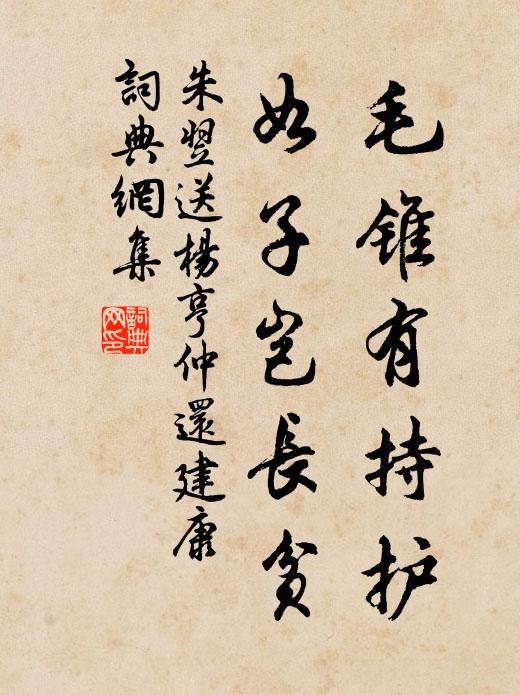 毛锥有持护
如子岂長貧
朱翌送楊亨仲還建康
詞典網集
詞典
网印